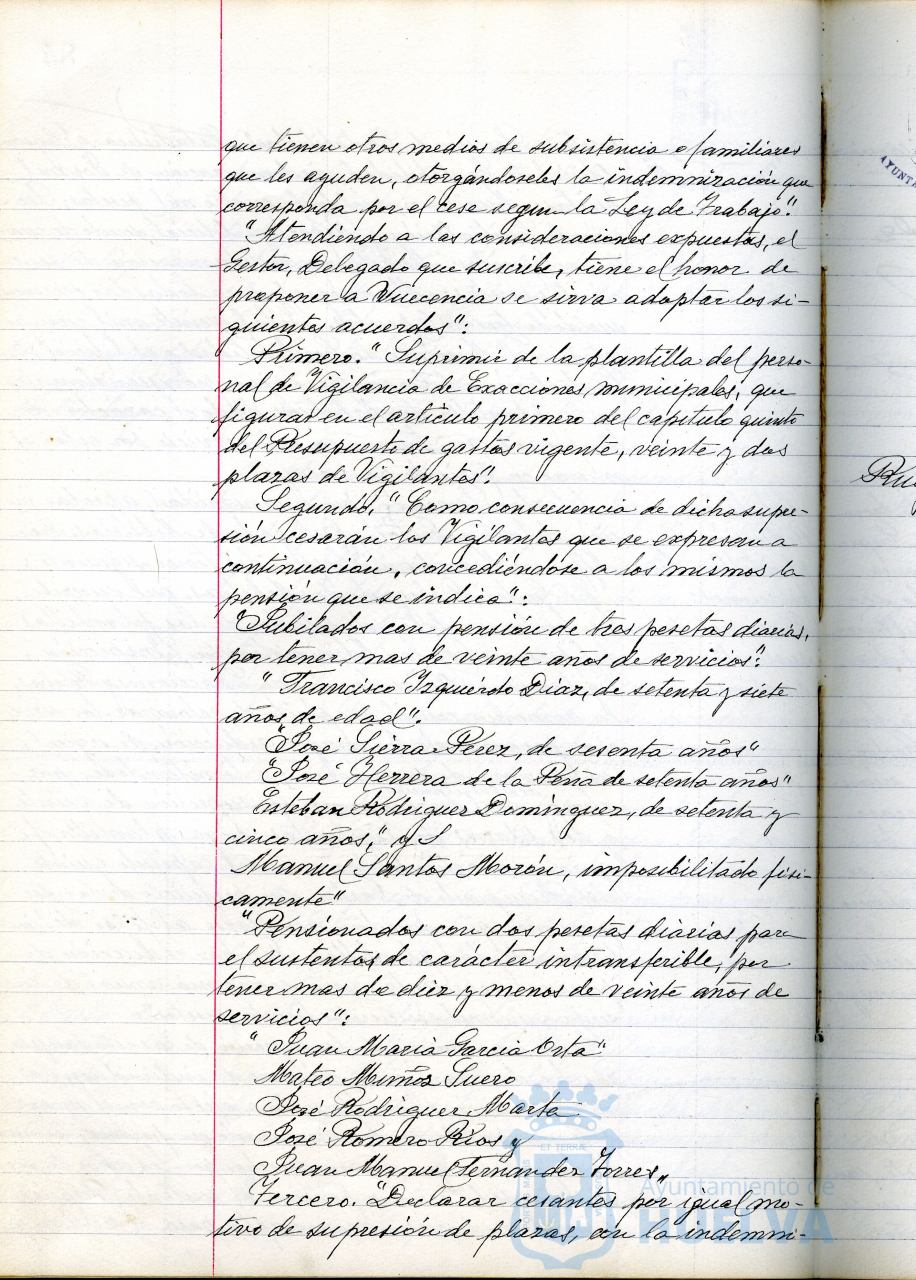 que tienen otros medios de subsistencia o familiares
que les ayuden, otorgándoseles la indemnización que
corresponda por el cese segun la Ley de Trabajo".
"Atendiendo a las consideraciones expuestas, el
Gestor, Delegado que suscribe, tiene el honor de
proponer a Vuecencia se sirva adoptar los si-
guientes acuerdos":
Primero. "Suprimir de la plantilla del perso-
nal de Vigilancia de Exacciones municipales, que
figuran en el artículo primero del capítulo quinto
del Presupuesto de gastos vigente, veinte y dos
plazas de Vigilantes".
Segundo. "Como consecuencia de dicha supre-
sión cesarán los Vigilantes que se expresan a
continuación, concediéndose a los mismos la
pensión que se indica":
"Jubilados con pensión de tres pesetas diarias,
por tener mas de veinte años de servicios":
"Francisco Izquierdo Díaz, de setenta y siete
años de edad".
"José Sierra Pérez, de sesenta años"
"José Herrera de la Peña de setenta años"
Esteban Rodríguez Domínguez, de setenta y
cinco años", y S
Manuel Santos Morón, imposibilitado físi-
camente"
"Pensionados con dos pesetas diarias para
el sustentos de carácter intransferible, por
tener mas de diez y menos de veinte años de
servicios":
"Juan María García Orta"
Mateo Muñoz Suero
José Rodríguez Marta
José Romero Ríos y
Juan Manuel Fernandez Torres"
Tercero. "Declarar cesantes por igual mo-
tivo de supresión de plazas, con la indemni-
ET TERRÆ
Ayuntamiento de
HUELVA
AYUNTA